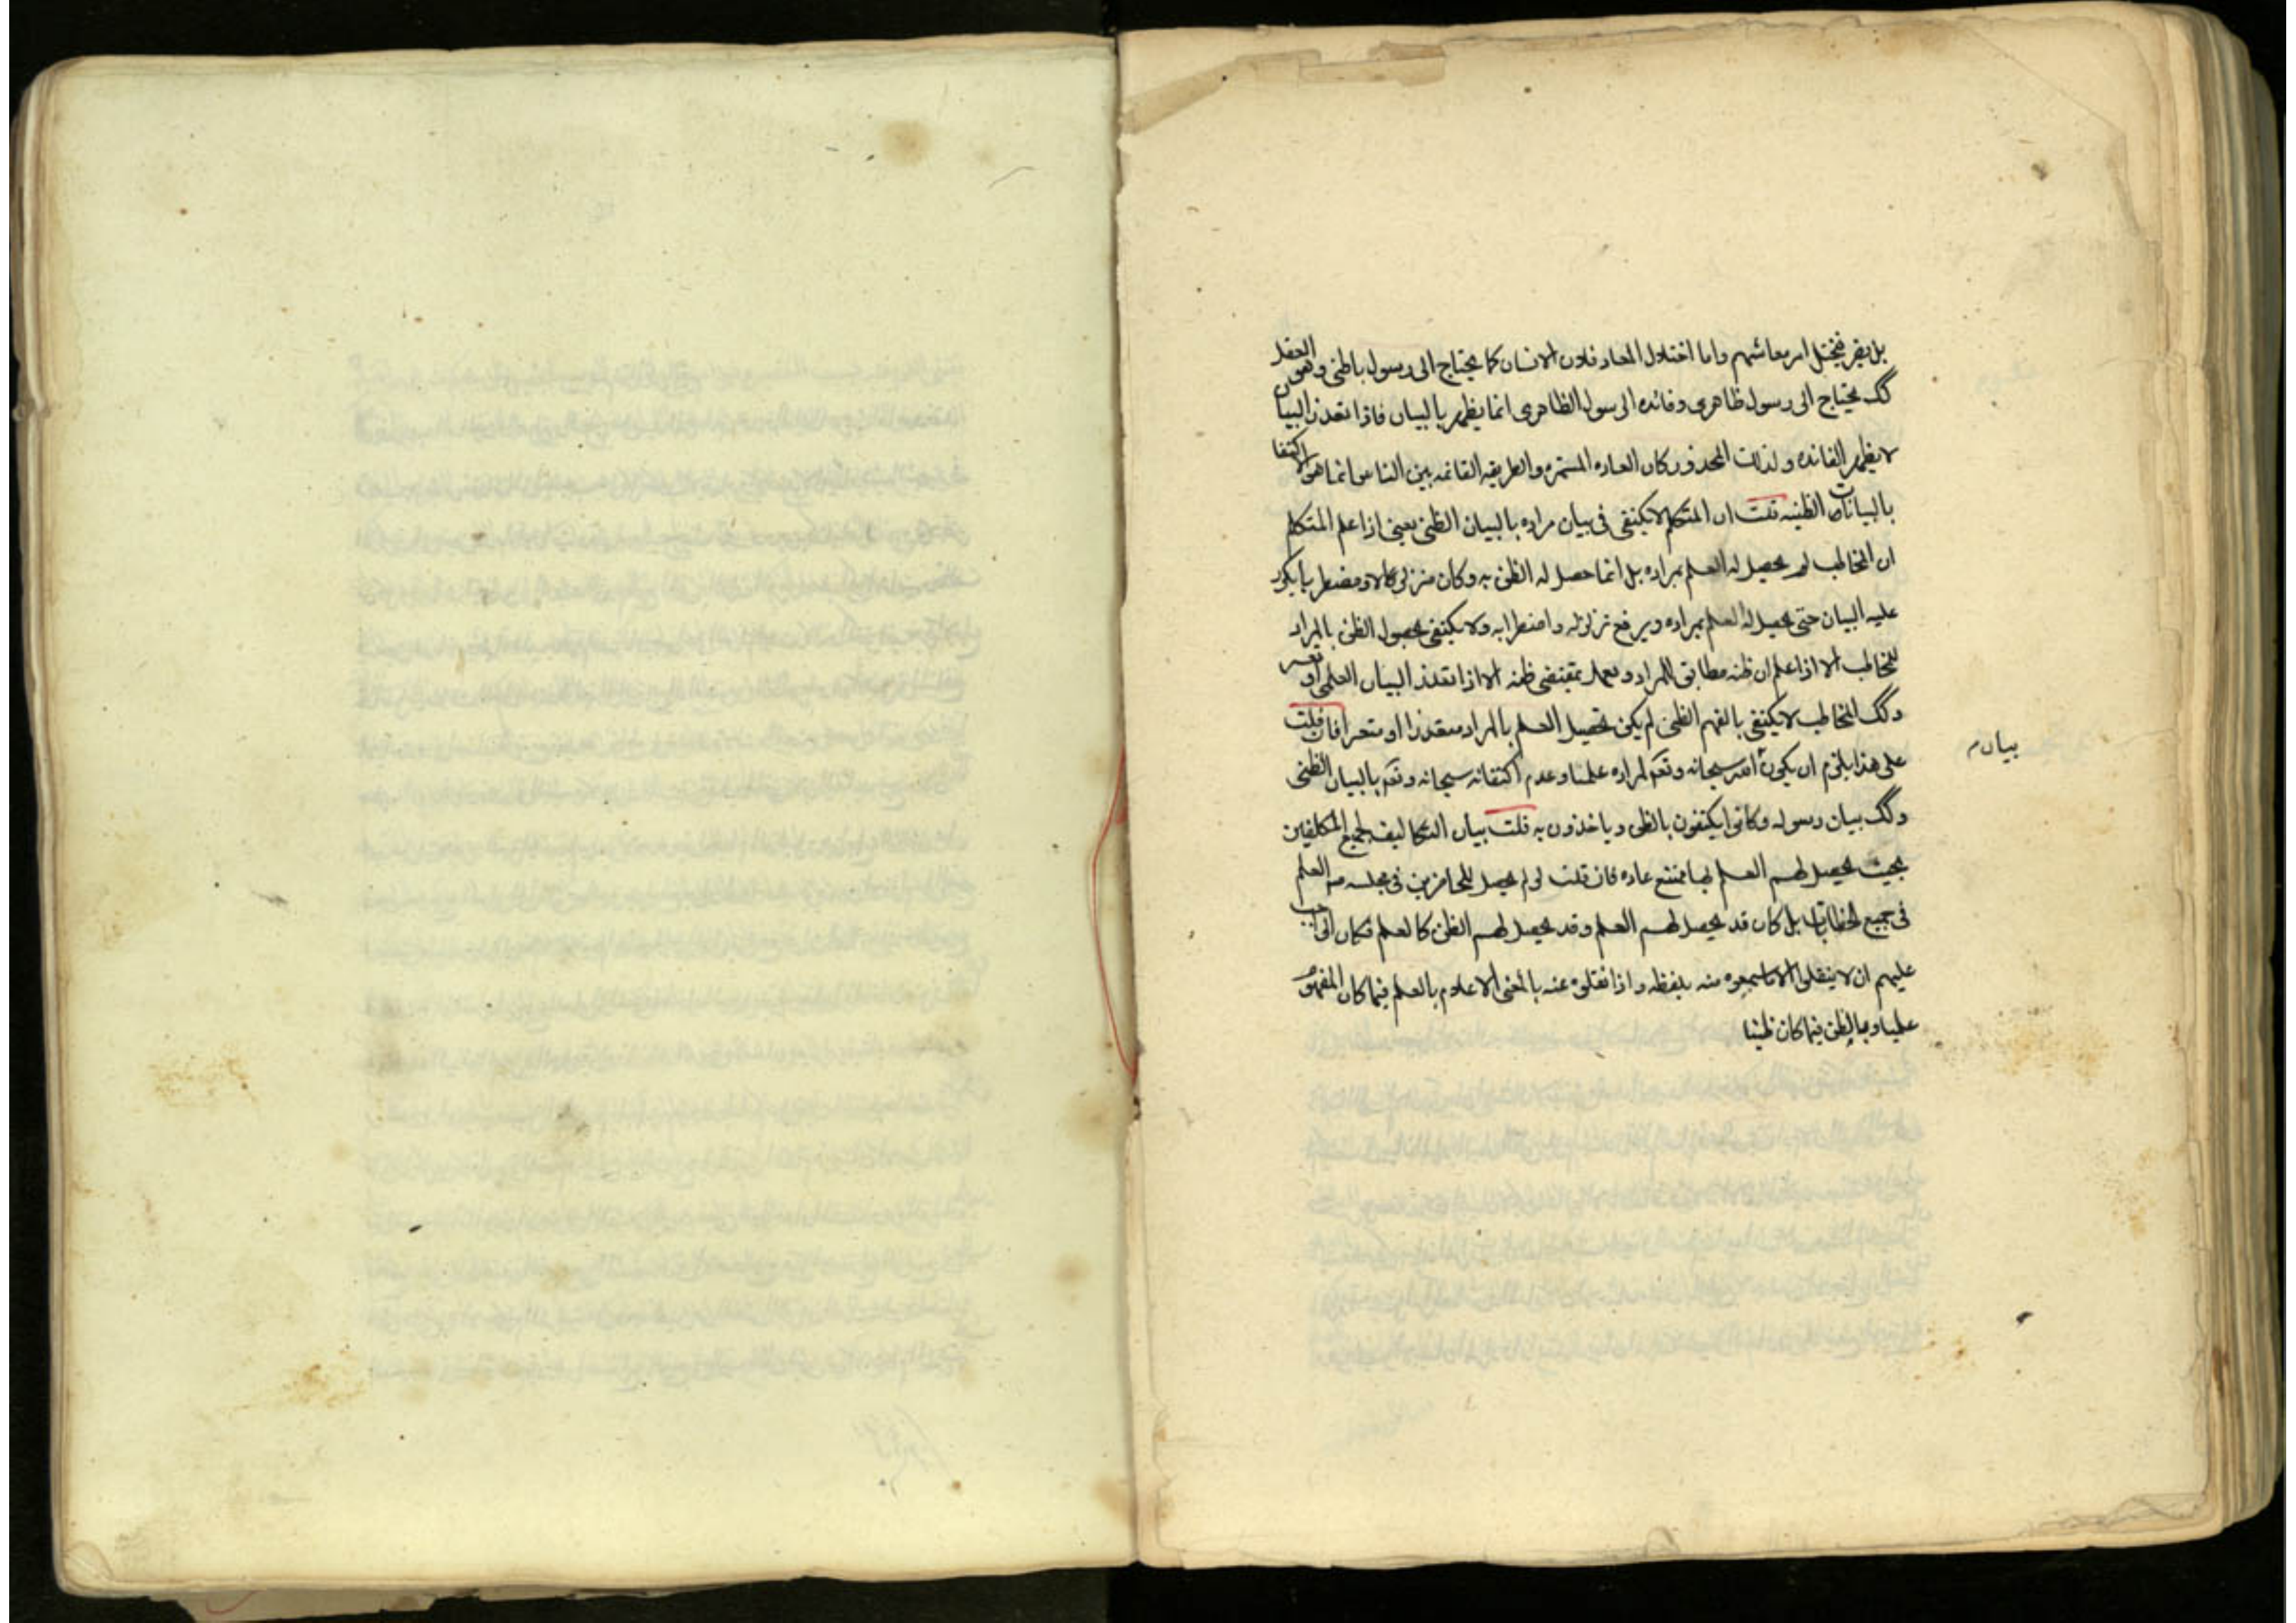 بل يفر فيختل امر معاشهم واما اختلال المعاد فلان الانسان كما يحتاج الى رسول باطنى وهو العقل
كك يحتاج الى رسول ظاهرى وفائده الرسول الظاهرى انما يظهر بالبيان فاذا تعذر البيان
لا يظهر الفائده ولذلك المحذور كان العاده المستمره والطريقه القائمه بين الناس انما هو الاكتفا
بالبيانات الظنيه قلت ان المتكلم لا يكتفى فى بيان مراده بالبيان الظنى يعنى اذا علم المتكلم
ان المخاطب لم يحصل له العلم بمراده بل انما حصل له الظن به وكان متزلزلا ومضطربا يكرر
عليه البيان حتى يحصل له العلم بمراده ويرفع تزلزله واضطرابه ولا يكتفى بحصول الظن بالمراد
للمخاطب الا اذا علم ان ظنه مطابق للمراد ويعمل بمقتضى ظنه الا اذا تعذر البيان العلمى او تعسر
وكك المخاطب لا يكتفى بالفهم الظنى لم يكن تحصيل العلم بالمراد متعذرا او متعسرا فان قلت
على هذا يلزم ان يكون الله سبحانه وتعم لمراده علميا وعدم اكتفائه سبحانه وتعم بالبيان الظنى
بيان م
وكك بيان رسوله وكانوا يكتفون بالظن وياخذون به قلت بيان التكاليف لجميع المكلفين
بحيث يحصل لهم العلم بها ممتنع عاده فان قلت لو لم يحصل للحاضرين فى مجلسه ص العلم
فى جميع الخطابات بل كان قد يحصل لهم العلم وقد يحصل لهم الظن كالعلم فكان الواجب
عليهم ان لا ينقلوا الا ما سمعوه منه بلفظه واذا نقلوه عنه بالمعنى الاعلام بالعلم فيما كان المفهوم
علميا وبالظن فيما كان ظنيا